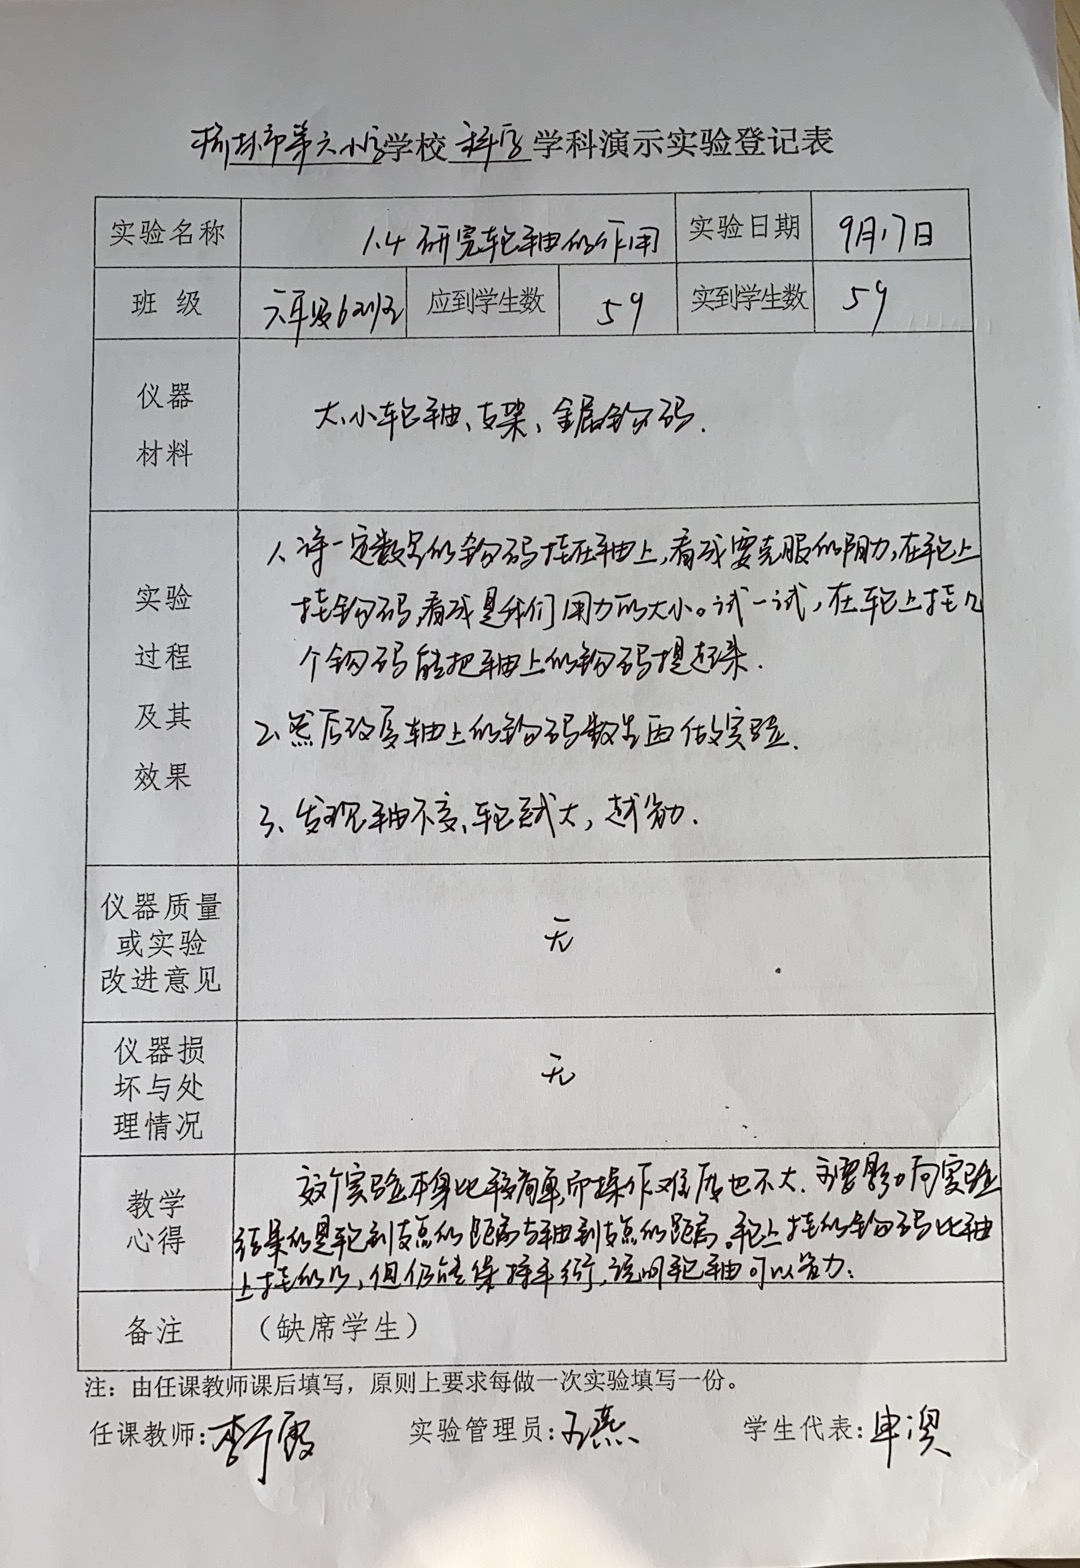 市第六小学学校 科学 学科演示实验登记表
实验名称 1.4 研究轮轴的作用 实验日期 9月17日
班 级 六年级62班 应到学生数 59 实到学生数 59
仪器
材料
大、小轮轴、支架、金属钩码.
实验
过程
及其
效果
1、将一定数量的钩码挂在轴上,看成要克服的阻力,在轮上
挂钩码,看成是我们用力的大小。试一试,在轮上挂几
个钩码能把轴上的钩码提起来.
2、然后改变轴上的钩码数量再做实验.
3、发现轴不变、轮越大,越省力.
仪器质量
或实验
改进意见
无
仪器损
坏与处
理情况
无
教学
心得
这个实验本身比较简单而操作难度也不大.主要影响实验
结果的是轮到支点的距离与轴到支点的距离,轮上挂的钩码比轴
上挂的少,但仍能保持平衡,说明轮轴可以省力.
备注 (缺席学生)
注:由任课教师课后填写,原则上要求每做一次实验填写一份。
任课教师: 李 霞 实验管理员: 燕 学生代表: 申